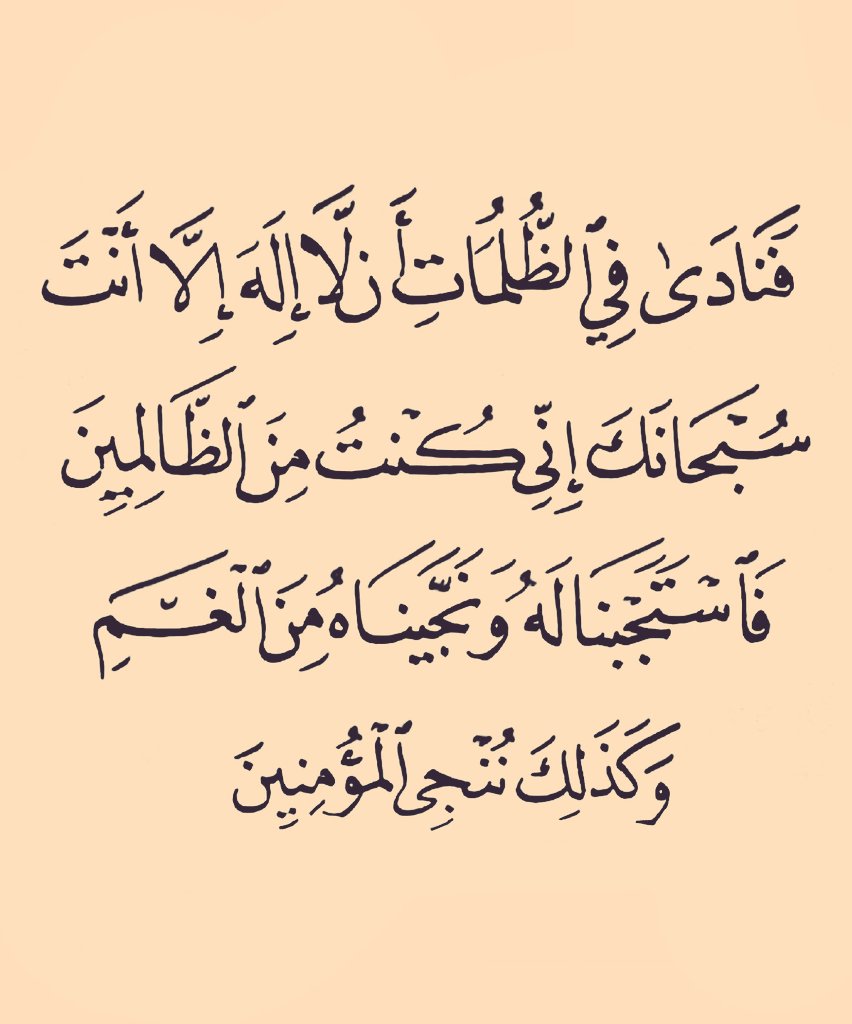 فَنَادَىٰ فِي ٱلظُّلُمَاتِ أَن لَّا إِلَهَ إِلَّا أَنْتَ
سُبْحَانَكَ إِنِّي كُنْتُ مِنَ ٱلظَّالِمِينَ
فَٱسْتَجَبْنَا لَهُ وَنَجَّيْنَاهُ مِنَ ٱلْغَمِّ
وَكَذَلِكَ نُنْجِى ٱلْمُؤْمِنِينَ